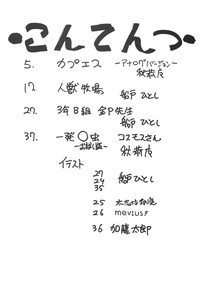 •こんてんつ•
5. カプエス ーアナログバージョンー
秋葉屋
17 人獣牧場
船戸ひとし
27. 3年B組 金P先生
船戸ひとし
37. 一発〇虫 コスモスさん
秋葉屋
イラスト
27
24 船戸ひとし
35
25
26 meviusゥ
36 加藤太郎